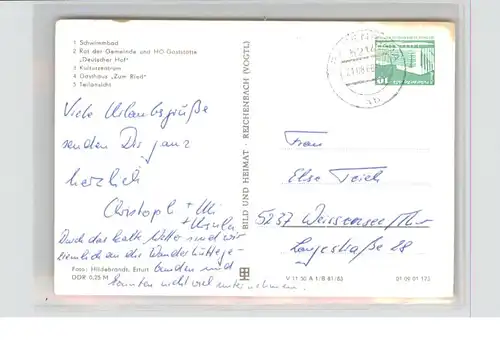 1 Schwimmbad
2 Rat der Gemeinde und HO-Gaststätte
"Deutscher Hof"
3 Kulturzentrum
4 Gasthaus "Zum Ried"
5 Teilansicht
Viele Urlaubsgrüße
senden Dir ganz
herzlich
Christoph + Uli
+ Ursula
Durch das kalte Wetter sind wir
ziemlich an die Wanderhütte ge-
bunden und
konnten nicht viel unternehmen.
Foto: Hildebrandt, Erfurt
DDR 0,25 M
BILD UND HEIMAT · REICHENBACH (VOGTL)
V 11 50 A 1/B 81/83
01 09 01 175
521
10
Frau
Else Teich
5237 Weissensee/Thür
Langestraße 28